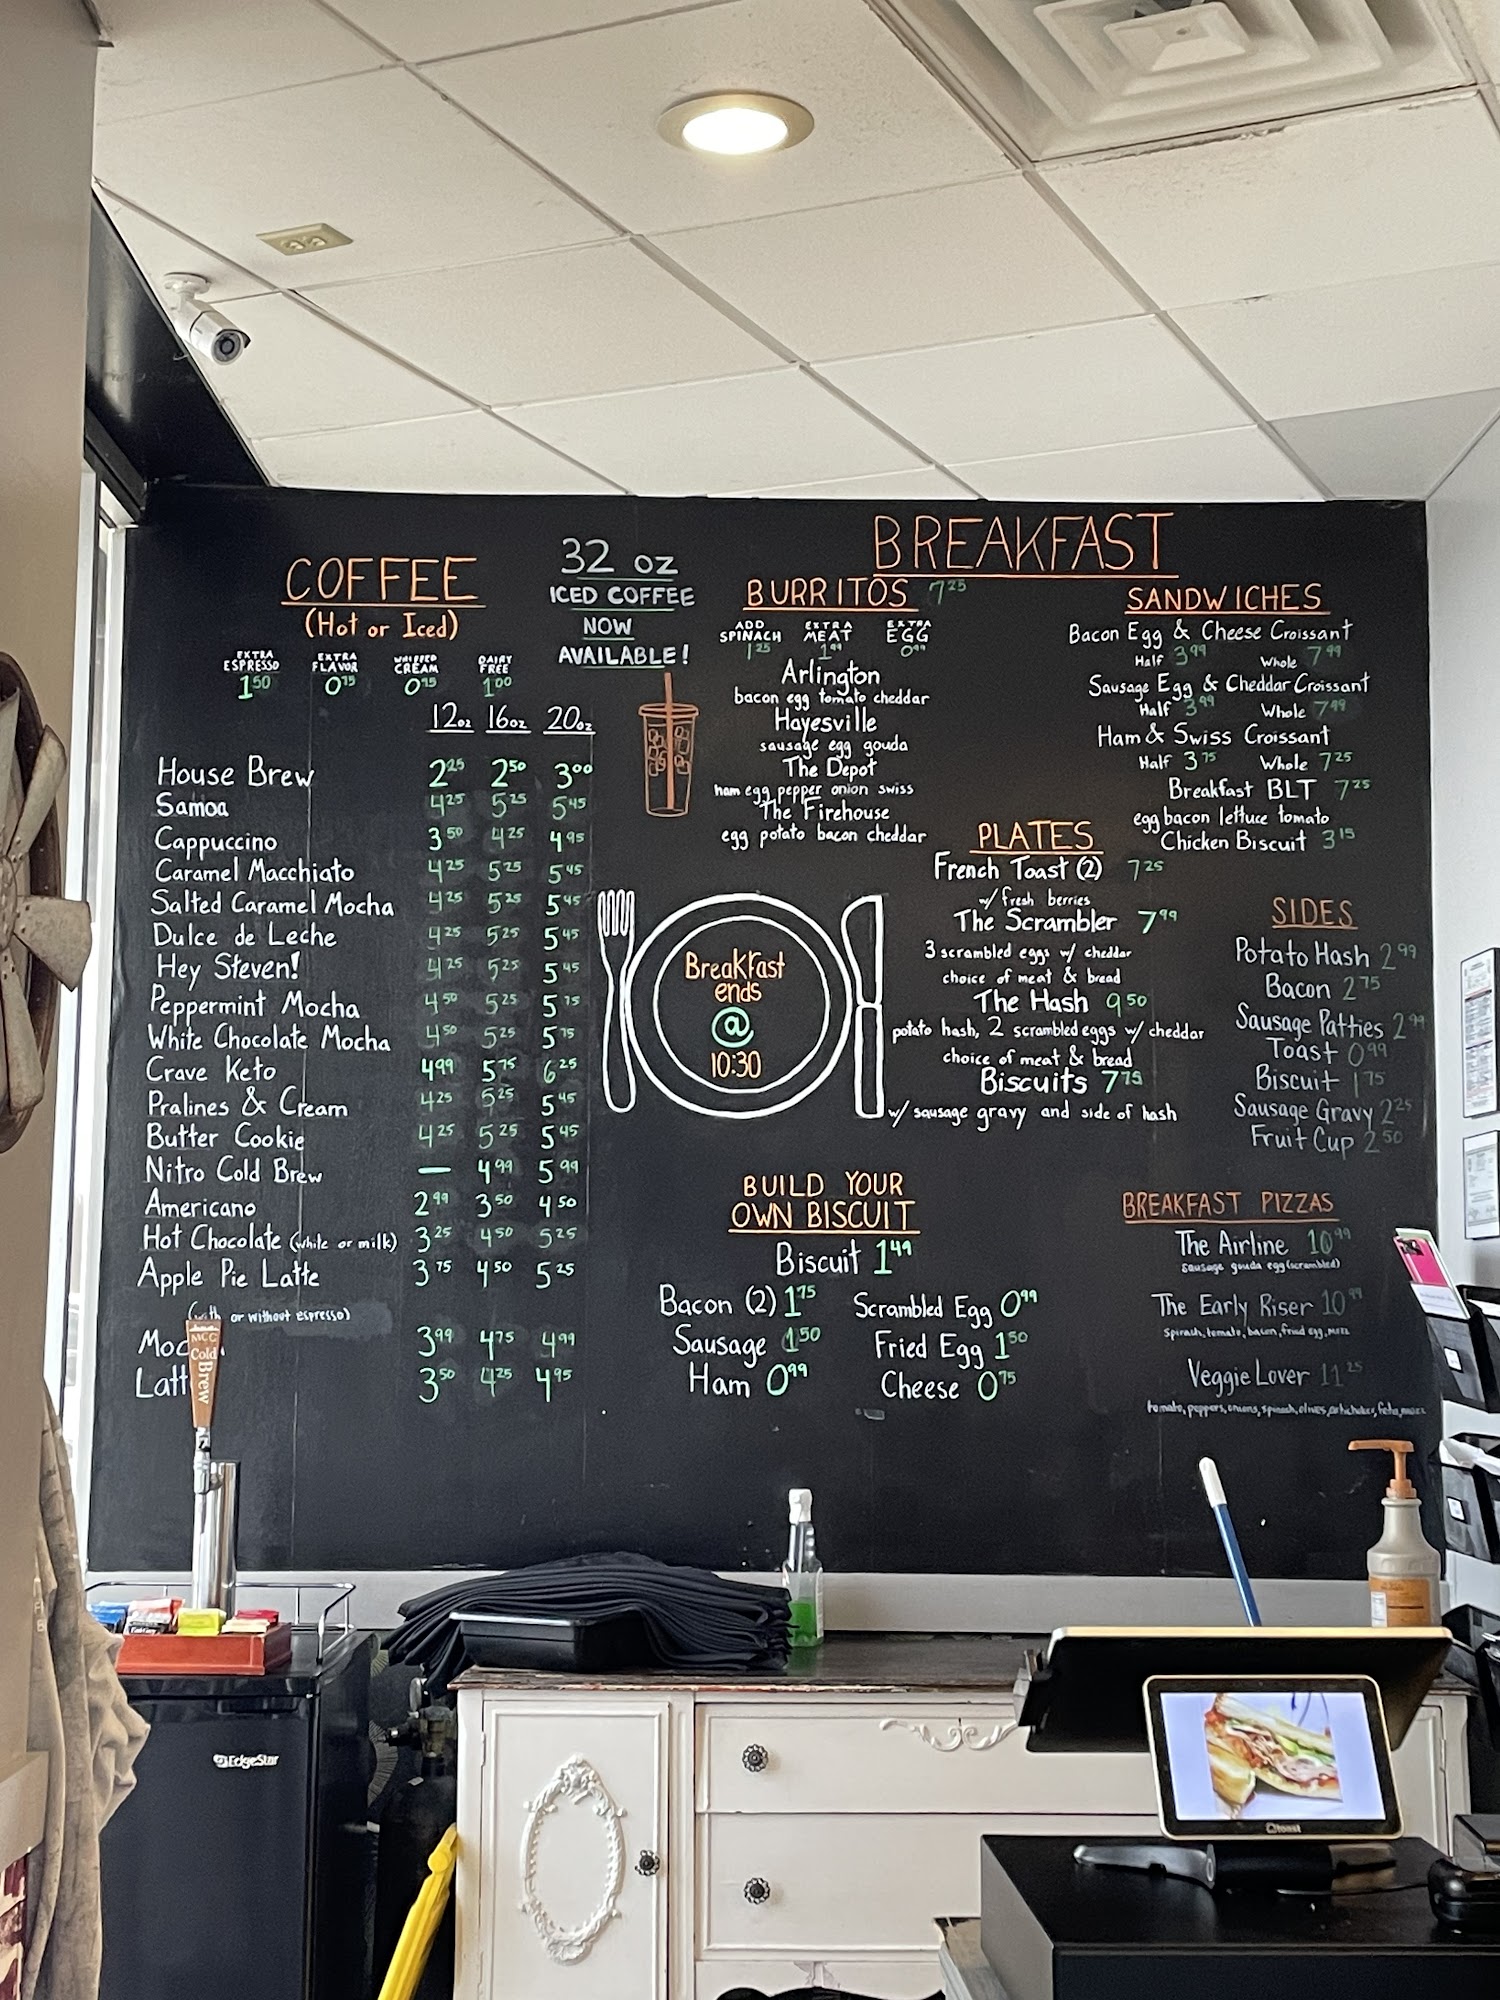 COFFEE
(Hot or Iced)
EXTRA ESPRESSO 1.50
EXTRA FLAVOR 0.75
WHIPPED CREAM 0.95
DAIRY FREE 1.00
12oz 16oz 20oz
House Brew 2.25 2.50 3.00
Samoa 4.25 5.25 5.45
Cappuccino 3.50 4.25 4.95
Caramel Macchiato 4.25 5.25 5.45
Salted Caramel Mocha 4.25 5.25 5.45
Dulce de Leche 4.25 5.25 5.45
Hey Steven! 4.25 5.25 5.45
Peppermint Mocha 4.50 5.25 5.75
White Chocolate Mocha 4.50 5.25 5.75
Crave Keto 4.99 5.75 6.25
Pralines & Cream 4.25 5.25 5.45
Butter Cookie 4.25 5.25 5.45
Nitro Cold Brew — 4.99 5.99
Americano 2.99 3.50 4.50
Hot Chocolate (white or milk) 3.25 4.50 5.25
Apple Pie Latte 3.75 4.50 5.25
(with or without espresso)
Moc 3.99 4.75 4.99
Latt 3.50 4.25 4.95
32 oz
ICED COFFEE
NOW
AVAILABLE!
BREAKFAST
BURRITOS 7.25
ADD SPINACH 1.25
EXTRA MEAT 1.99
EXTRA EGG 0.99
Arlington
bacon egg tomato cheddar
Hayesville
sausage egg gouda
The Depot
ham egg pepper onion swiss
The Firehouse
egg potato bacon cheddar
SANDWICHES
Bacon Egg & Cheese Croissant
Half 3.99 Whole 7.99
Sausage Egg & Cheddar Croissant
Half 3.99 Whole 7.49
Ham & Swiss Croissant
Half 3.75 Whole 7.25
Breakfast BLT 7.25
egg bacon lettuce tomato
Chicken Biscuit 3.15
PLATES
French Toast (2) 7.25
w/ fresh berries
The Scrambler 7.99
3 scrambled eggs w/ cheddar
choice of meat & bread
The Hash 9.50
potato hash, 2 scrambled eggs w/ cheddar
choice of meat & bread
Biscuits 7.75
w/ sausage gravy and side of hash
SIDES
Potato Hash 2.99
Bacon 2.75
Sausage Patties 2.99
Toast 0.99
Biscuit 1.75
Sausage Gravy 2.25
Fruit Cup 2.50
Breakfast
ends
@
10:30
BUILD YOUR
OWN BISCUIT
Biscuit 1.49
Bacon (2) 1.75 Scrambled Egg 0.99
Sausage 1.50 Fried Egg 1.50
Ham 0.99 Cheese 0.75
BREAKFAST PIZZAS
The Airline 10.99
sausage gouda egg (scrambled)
The Early Riser 10.99
Spinach, tomato, bacon, fried egg, mozz
Veggie Lover 11.25
tomato, peppers, onions, spinach, olives, artichokes, feta, mozz
MCC
Cold
Brew
EdgeStar
toast